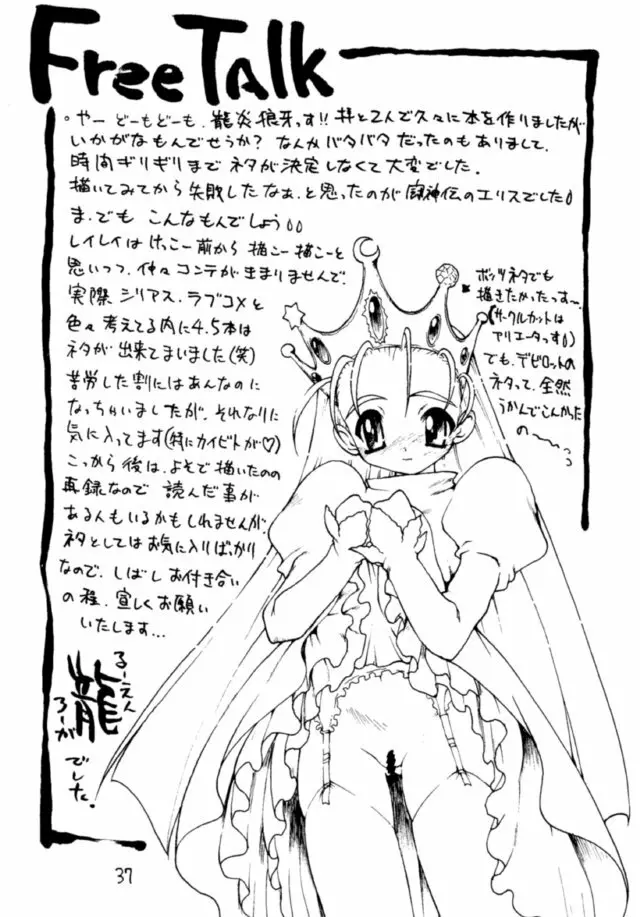 Free Talk
。やー どーもどーも、龍炎狼牙っす!! 拝と2人で久々に本を作りましたが
いかがなもんでせうか? なんかバタバタだったのもありまして、
時間ギリギリまで ネタが決定しなくて大変でした。
描いてみてから失敗したなぁ、と思ったのが 闘神伝のエリスでした
ま、でも こんなもんでしょう
レイレイは けっこー前から 描こー描こーと
思いつつ、仲々コンテがきまりませんで、
実際 シリアス、ラブコメと
色々考えてる内に 4.5本は
ネタが出来てまいました(笑)
苦労した割にはあんなのに
なっちゃいましたが、それなりに
気に入ってます(特にカイビトが♡)
こっから後は、よそで描いたの
再録なので 読んだ事が
ある人もいるかもしれませんが
ネタとしてはお気に入りばっかり
なので、しばし お付き合い
の程、宜しくお願い
いたします...
るーえん
龍
ろーが
でした。
ボツネタでも
描きたかったっすー
(サークルカットは
アリエータっす)
でも、デビロットの
ネタって、全然
うかんでこんかった
の〜〜っっ
37